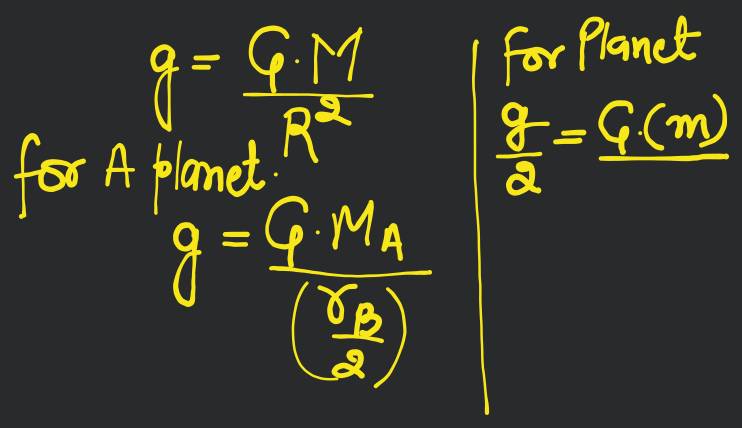 g = G·M / R²
for A planet.
g = G·M_A / (r_B / 2)
for Planet
g/2 = G·(m)